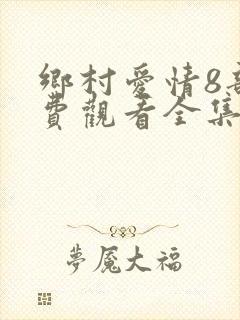 鄉村愛情8部
費觀看全集
夢魘大福